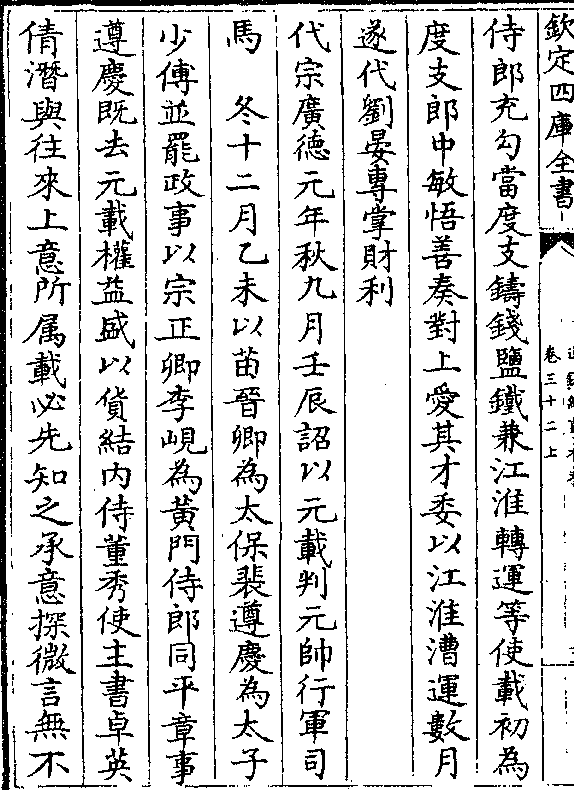 欽定四庫全書
卷三十二上
侍郎充勾當度支鑄錢鹽鐵兼江淮轉運等使載初為
度支郎中敏悟善奏對上愛其才委以江淮漕運數月
遂代劉晏專掌財利
代宗廣德元年秋九月壬辰詔以元載判元帥行軍司
馬　冬十二月乙未以苗晉卿為太保裴遵慶為太子
少傅並罷政事以宗正卿李峴為黃門侍郎同平章事
遵慶既去元載權益盛以貨結内侍董秀使主書卓英
倩潛與往來上意所属載必先知之承意探微言無不